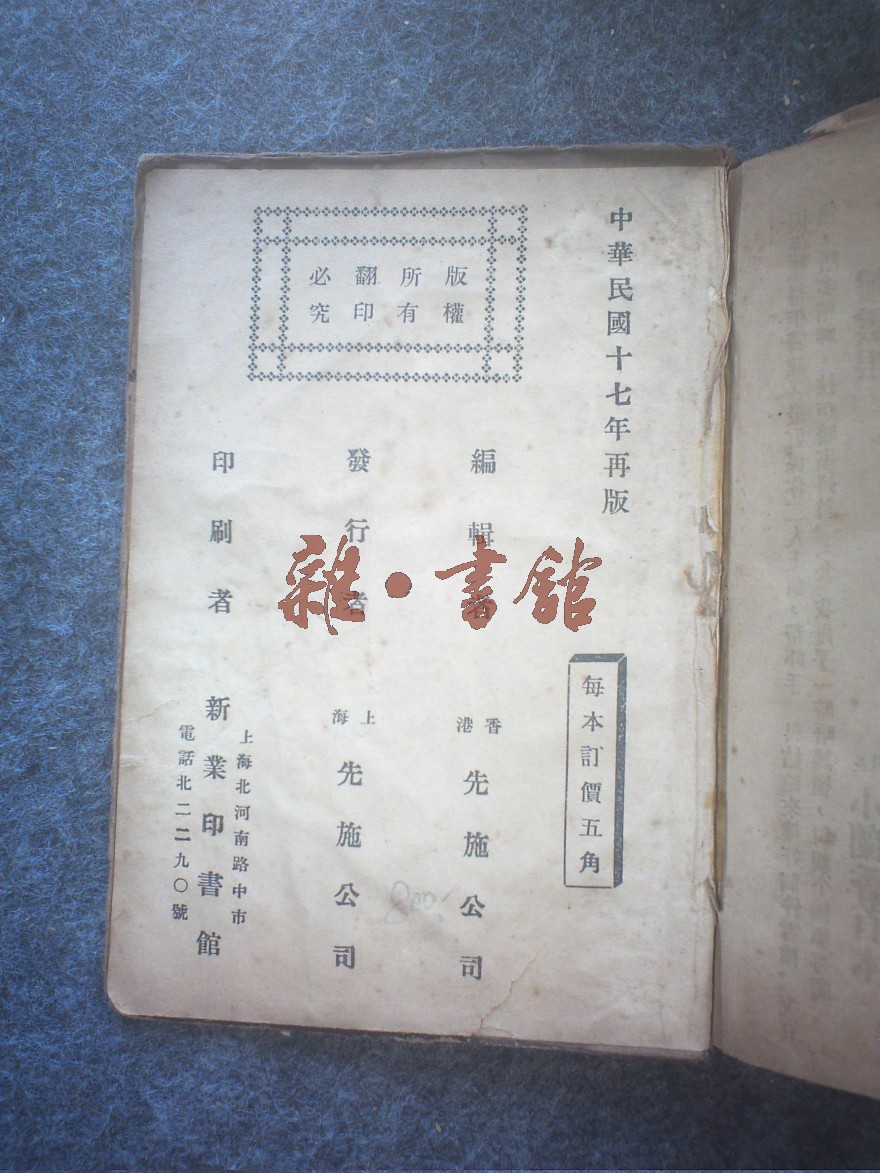 中華民國十七年再版
版權
所有
翻印
必究
每本訂價五角
編輯者
香港
先施公司
發行者
上海
先施公司
印刷者
上海北河南路中市
新業印書館
電話北二二九〇號
雜·書館
800